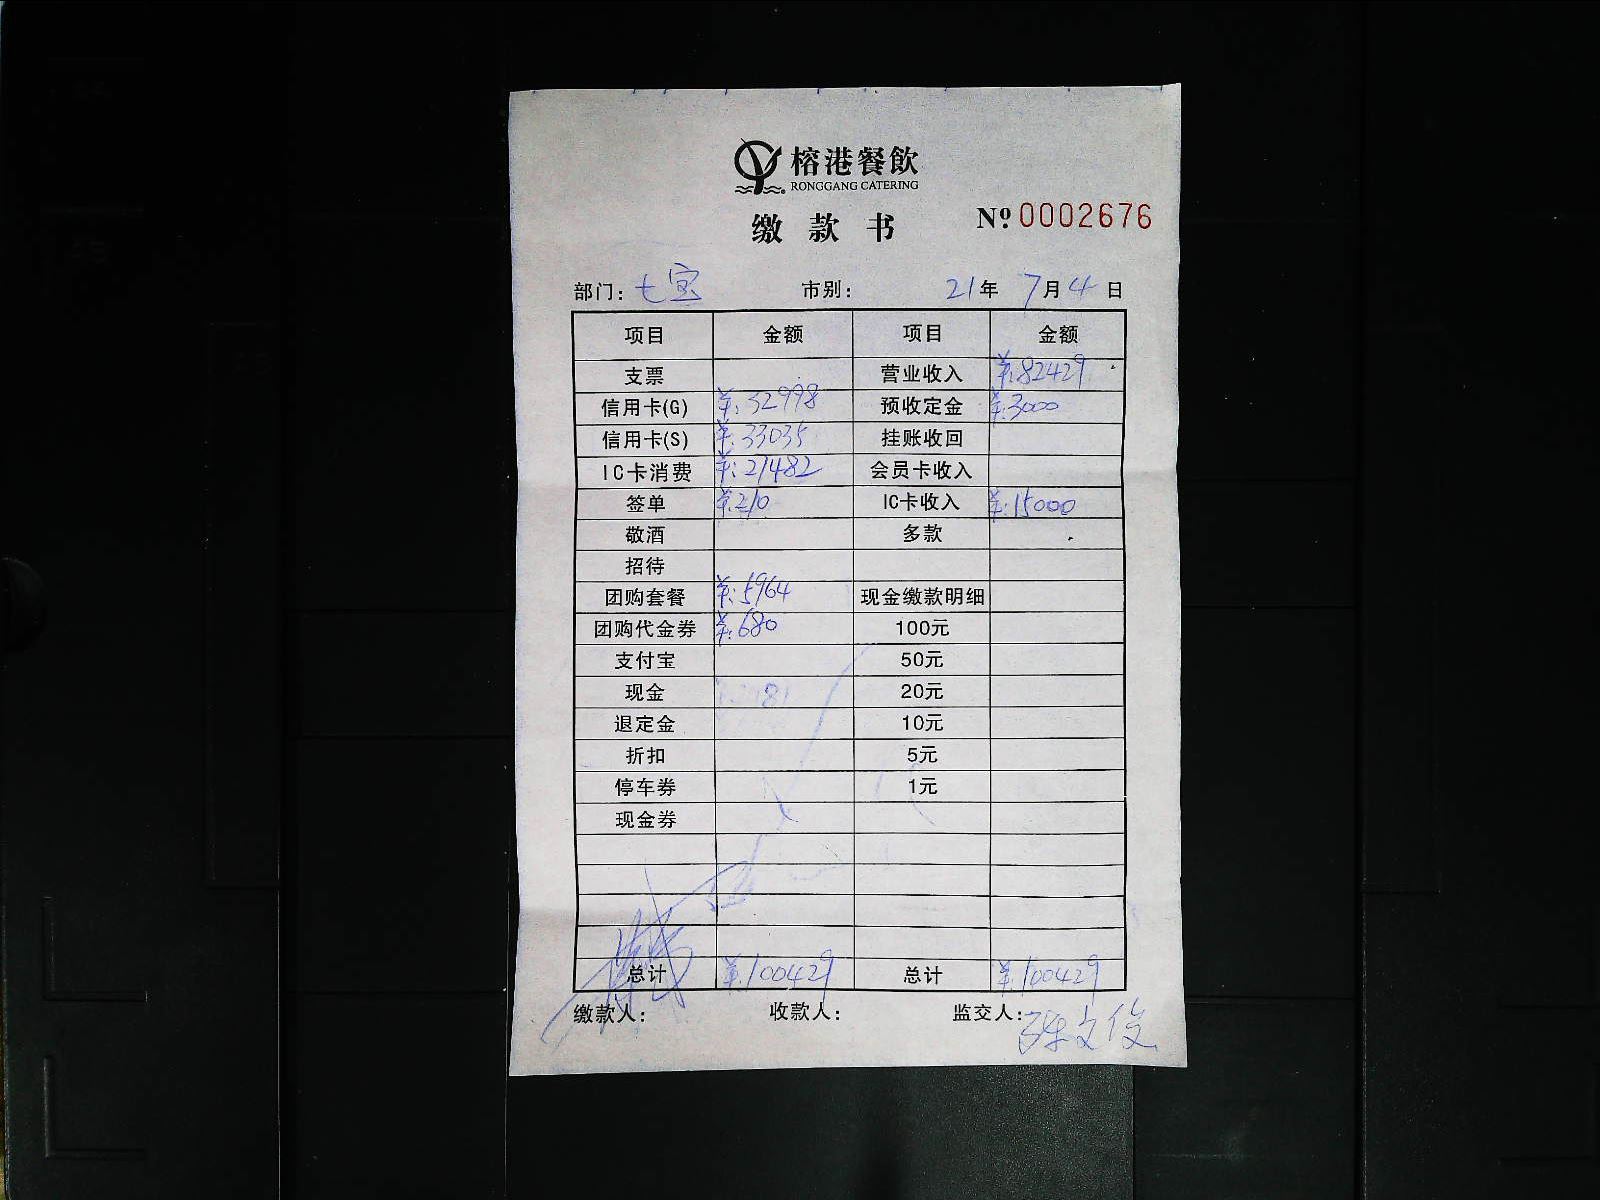 榕港餐飲
RONGGANG CATERING
缴款书 №0002676
部门：七宝 市别： 21年 7月4日
项目 金额 项目 金额
支票 营业收入 ¥:82429
信用卡(G) ¥:32998 预收定金 ¥:3000
信用卡(S) ¥:33035 挂账收回
IC卡消费 ¥:27482 会员卡收入
签单 ¥:270 IC卡收入 ¥:15000
敬酒 多款
招待
团购套餐 ¥:5964 现金缴款明细
团购代金券 ¥:680 100元
支付宝 50元
现金 20元
退定金 10元
折扣 5元
停车券 1元
现金券
总计 ¥:100429 总计 ¥:100429
缴款人： 收款人： 监交人：